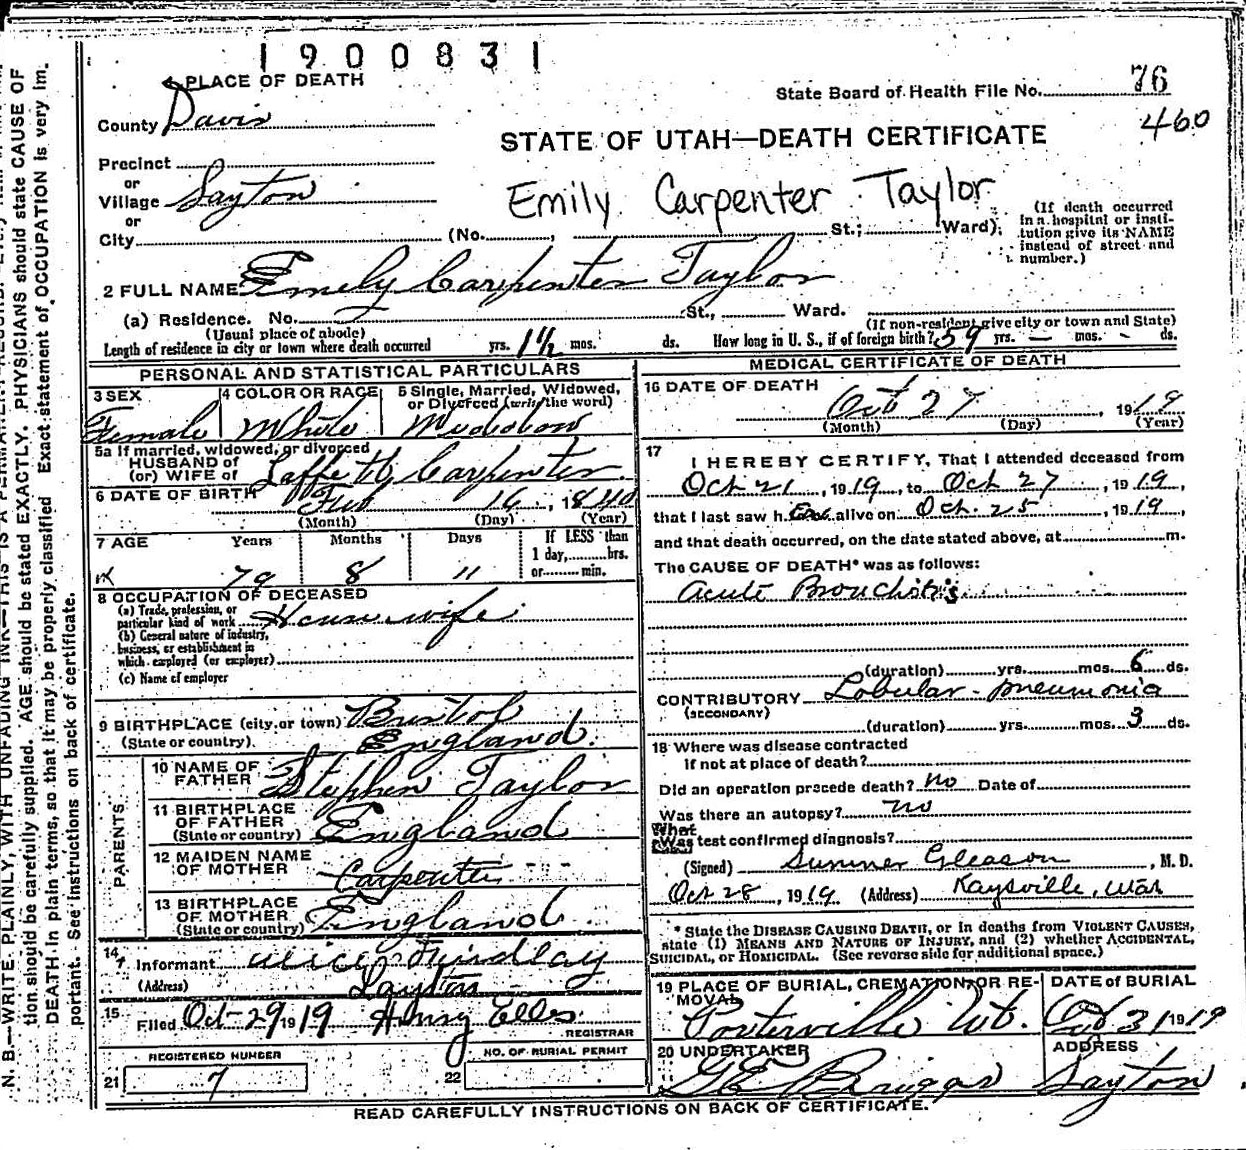 1900831
PLACE OF DEATH
State Board of Health File No. 76
460
County Davis
STATE OF UTAH—DEATH CERTIFICATE
Precinct
or
Village Layton
Emily Carpenter Taylor
or
City (No. , St.; Ward);
(If death occurred in a hospital or institution give its NAME instead of street and number.)
2 FULL NAME Emily Carpenter Taylor
(a) Residence. No. St., Ward.
(Usual place of abode) (If non-resident give city or town and State)
Length of residence in city or town where death occurred yrs. 1½ mos. ds. How long in U. S., if of foreign birth? 59 yrs. — mos. - ds.
PERSONAL AND STATISTICAL PARTICULARS
3 SEX 4 COLOR OR RACE 5 Single, Married, Widowed, or Divorced (write the word)
Female White
5a If married, widowed, or divorced
HUSBAND of
(or) WIFE of Carpenter
6 DATE OF BIRTH Feb 16, 1840
(Month) (Day) (Year)
7 AGE Years Months Days If LESS than
1 day, hrs.
79 8 11 or min.
8 OCCUPATION OF DECEASED
(a) Trade, profession, or
particular kind of work Housewife
(b) General nature of industry,
business, or establishment in
which employed (or employer)
(c) Name of employer
9 BIRTHPLACE (city or town) Bristol
(State or country) England.
PARENTS
10 NAME OF FATHER Stephen Taylor
11 BIRTHPLACE OF FATHER
(State or country) England
12 MAIDEN NAME OF MOTHER Carpenter
13 BIRTHPLACE OF MOTHER
(State or country) England
14 Informant Alice Findlay
(Address) Layton
15 Filed Oct-29 1919 Henry Ellis
REGISTRAR
REGISTERED NUMBER NO. OF BURIAL PERMIT
21 7 22
MEDICAL CERTIFICATE OF DEATH
16 DATE OF DEATH Oct 27, 1919
(Month) (Day) (Year)
17 I HEREBY CERTIFY, That I attended deceased from
Oct 21, 1919, to Oct 27, 1919,
that I last saw her alive on Oct. 25, 1919,
and that death occurred, on the date stated above, at m.
The CAUSE OF DEATH* was as follows:
Acute Bronchitis
(duration) yrs. mos. 6 ds.
CONTRIBUTORY Lobular-pneumonia
(SECONDARY)
(duration) yrs. mos. 3 ds.
18 Where was disease contracted
if not at place of death?
Did an operation precede death? no Date of
Was there an autopsy? no
What
Was test confirmed diagnosis?
(Signed) Sumner Gleason, M. D.
Oct 28, 1919. (Address) Kaysville, Utah
* State the DISEASE CAUSING DEATH, or in deaths from VIOLENT CAUSES,
state (1) MEANS AND NATURE OF INJURY, and (2) whether ACCIDENTAL,
SUICIDAL, or HOMICIDAL. (See reverse side for additional space.)
19 PLACE OF BURIAL, CREMATION, OR REMOVAL DATE of BURIAL
Porterville Ut. Oct 31 1919
20 UNDERTAKER ADDRESS
Layton
READ CAREFULLY INSTRUCTIONS ON BACK OF CERTIFICATE.
N. B.—WRITE PLAINLY, WITH UNFADING INK—THIS IS A PERMANENT RECORD.
tion should be carefully supplied. AGE should be stated EXACTLY. PHYSICIANS should state CAUSE OF
DEATH in plain terms, so that it may be properly classified. Exact statement of OCCUPATION is very im-
portant. See instructions on back of certificate.